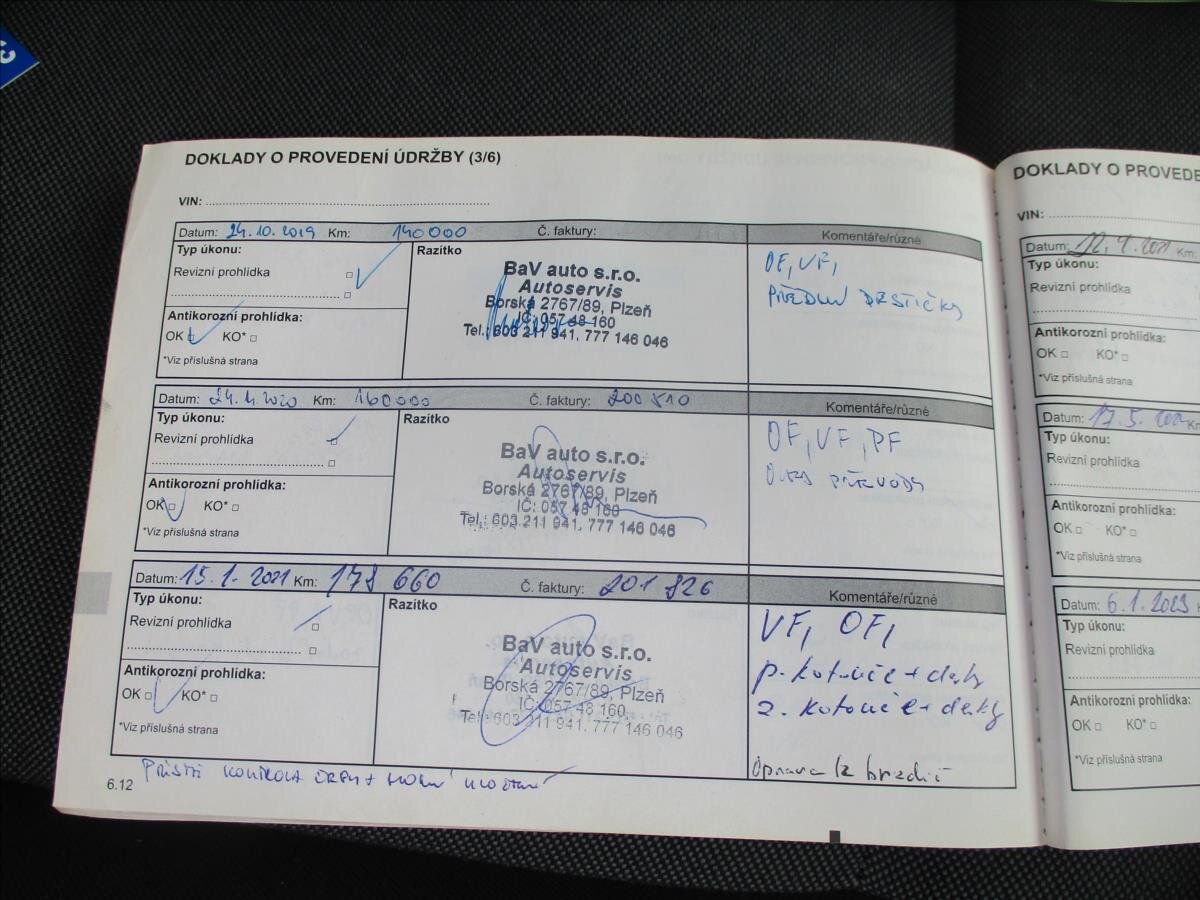 DOKLADY O PROVEDENÍ ÚDRŽBY (3/6)
VIN:
Datum: 24.10.2019 Km: 140000 Č. faktury:
Komentáře/různé
Typ úkonu:
Revizní prohlídka
Antikorozní prohlídka:
OK KO*
*Viz příslušná strana
Razítko
BaV auto s.r.o.
Autoservis
Borská 2767/89, Plzeň
IČ: 057 48 160
Tel.: 603 211 941, 777 146 046
OF, VF,
PŘEDNÍ DESTIČKY
Datum: 24.4.2020 Km: 160000 Č. faktury: 200510
Komentáře/různé
Typ úkonu:
Revizní prohlídka
Antikorozní prohlídka:
OK KO*
*Viz příslušná strana
Razítko
BaV auto s.r.o.
Autoservis
Borská 2767/89, Plzeň
IČ: 057 48 160
Tel.: 603 211 941, 777 146 046
OF, VF, PF
PŘEVODY
Datum: 15.1.2021 Km: 178 660 Č. faktury: 201826
Komentáře/různé
Typ úkonu:
Revizní prohlídka
Antikorozní prohlídka:
OK KO*
*Viz příslušná strana
Razítko
BaV auto s.r.o.
Autoservis
Borská 2767/89, Plzeň
IČ: 057 48 160
Tel.: 603 211 941, 777 146 046
VF, OF,
p. kotouče + desky
z. kotouče + desky
Oprava brzdič
PŘÍŠTĚ KONTROLA
6.12
DOKLADY O PROVEDE
VIN:
Datum: Km:
Typ úkonu:
Revizní prohlídka
Antikorozní prohlídka:
OK KO*
*Viz příslušná strana
Datum: 17.5. Km
Typ úkonu:
Revizní prohlídka
Antikorozní prohlídka:
OK KO*
*Viz příslušná strana
Datum: 6.1.2023
Typ úkonu:
Revizní prohlídka
Antikorozní prohlídka:
OK KO*
*Viz příslušná strana